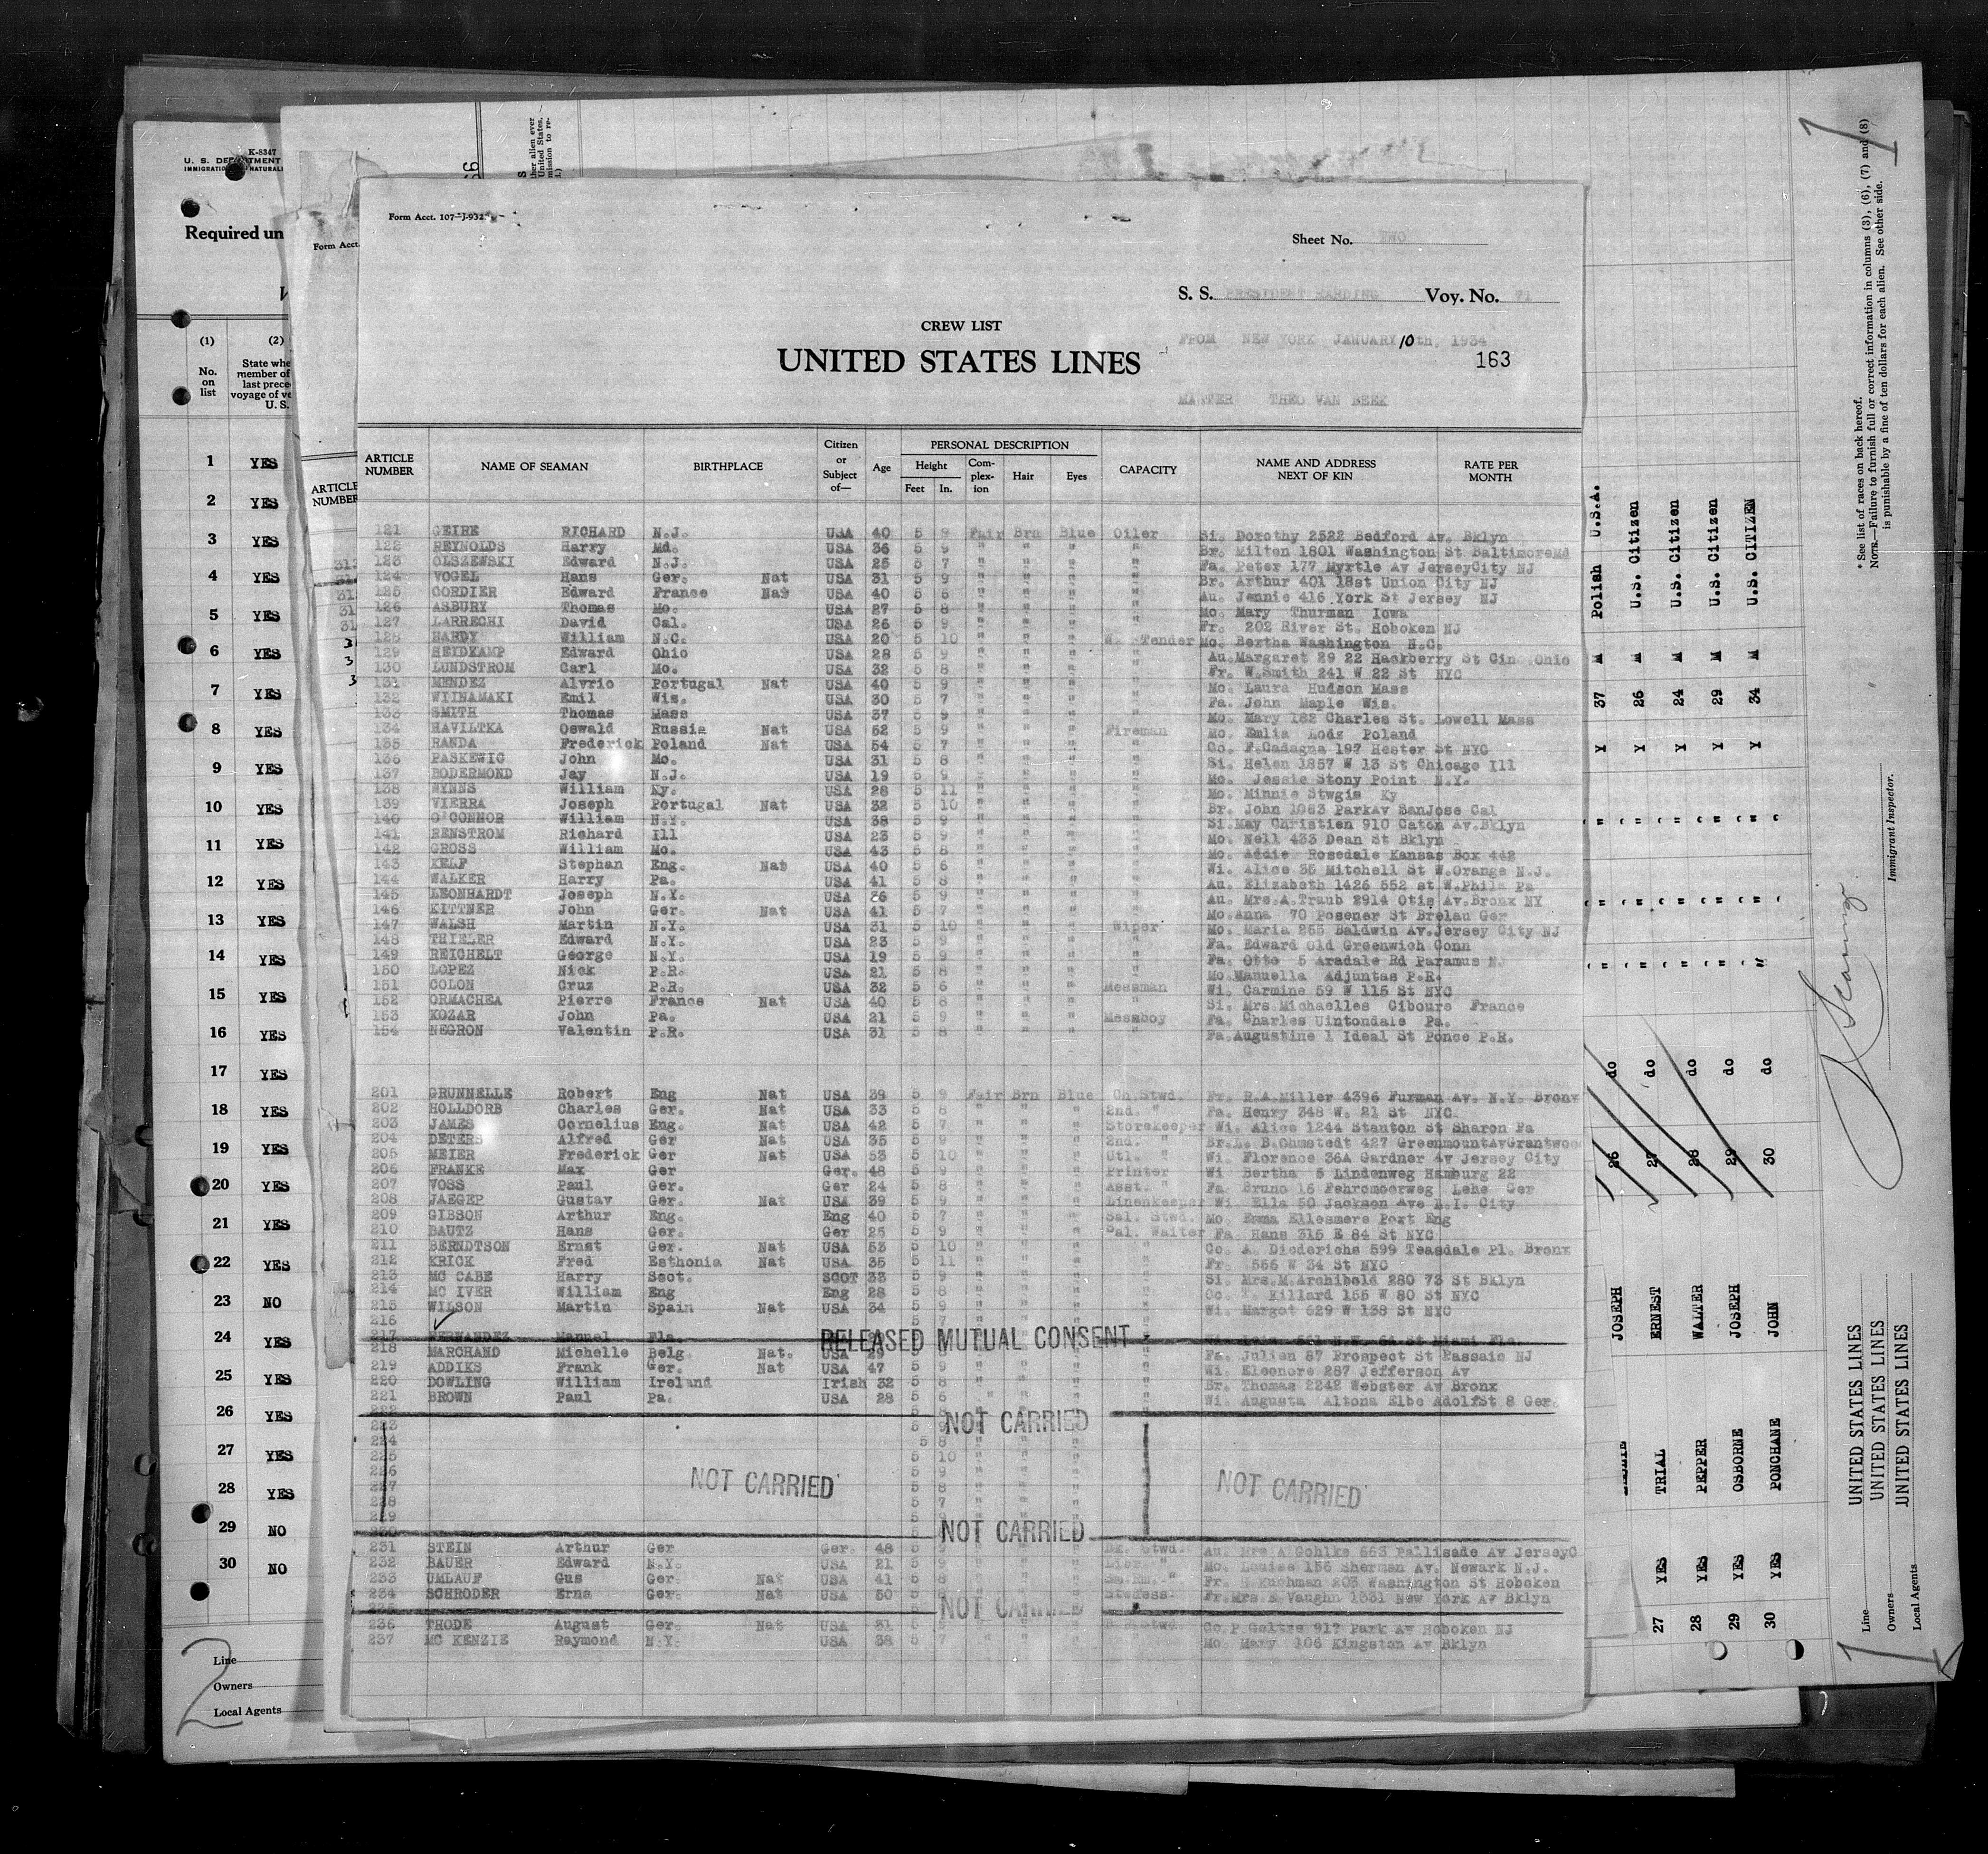 K-8347
IMMIGRATION
Required un
Form Acct.
(1) (2)
No. on list
State whe
member of
last prece
voyage of ve
U. S.
1 YES
2 YES
3 YES
4 YES
5 YES
6 YES
7 YES
8 YES
9 YES
10 YES
11 YES
12 YES
13 YES
14 YES
15 YES
16 YES
17 YES
18 YES
19 YES
20 YES
21 YES
22 YES
23 NO
24 YES
25 YES
26 YES
27 YES
28 YES
29 NO
30 NO
Line
Owners
Local Agents
2
ARTICLE
NUMBER
Form Acct. 107-J-932
Sheet No. TWO
S. S. PRESIDENT HARDING Voy. No. 71
CREW LIST
FROM NEW YORK JANUARY 10th, 1934
UNITED STATES LINES
163
MASTER THEO VAN BEEK
ARTICLE NUMBER NAME OF SEAMAN BIRTHPLACE Citizen or Subject of— Age PERSONAL DESCRIPTION CAPACITY NAME AND ADDRESS NEXT OF KIN RATE PER MONTH
Height Feet In. Complexion Hair Eyes
121 GEIRE RICHARD N.J. USA 40 5 9 Fair Brn Blue Oiler Si. Dorothy 2522 Bedford Av. Bklyn
122 REYNOLDS Harry Md. USA 36 5 9 " " " " Br. Milton 1801 Washington St BaltimoreMd
123 OLSZEWSKI Edward N.J. USA 25 5 7 " " " " Fa. Peter 177 Myrtle Av JerseyCity NJ
124 VOGEL Hans Ger. Nat USA 31 5 9 " " " " Br. Arthur 401 18st Union City NJ
125 CORDIER Edward France Nat USA 40 5 6 " " " " Au. Jennie 416 York St Jersey NJ
126 ASBURY Thomas Mo. USA 27 5 8 " " " " Mo. Mary Thurman Iowa
127 LARRECHI David Cal. USA 26 5 9 " " " " Fr. 202 River St. Hoboken NJ
128 HARDY William N.C. USA 20 5 10 " " " W. Tender Mo. Bertha Washington N.C.
129 HEIDKAMP Edward Ohio USA 28 5 9 " " " " Au.Margaret 29 22 Hackberry St Cin Ohio
130 LUNDSTROM Carl Mo. USA 32 5 8 " " " " Fr. W.Smith 241 W 22 St NYC
131 MENDEZ Alvrio Portugal Nat USA 40 5 9 " " " " Mo. Laura Hudson Mass
132 WIINAMAKI Emil Wis. USA 30 5 7 " " " " Fa. John Maple Wis.
133 SMITH Thomas Mass USA 37 5 9 " " " " Mo. Mary 182 Charles St. Lowell Mass
134 HAVILTKA Oswald Russia Nat USA 52 5 9 " " " Fireman Mo. Emlia Lods Poland
135 RANDA Frederick Poland Nat USA 54 5 7 " " " " Co. F.Cadagna 197 Hester St NYC
136 PASKEWIC John Mo. USA 31 5 8 " " " " Si. Helen 1857 W 13 St Chicago Ill
137 BODERMOND Jay N.J. USA 19 5 9 " " " " Mo. Jessie Stony Point N.Y.
138 WYNNS William Ky. USA 28 5 11 " " " " Mo. Minnie Stwgis Ky
139 VIERRA Joseph Portugal Nat USA 32 5 10 " " " " Br. John 1063 ParkAv SanJose Cal
140 O'CONNOR William N.Y. USA 38 5 9 " " " " Si.May Christien 910 Caton Av.Bklyn
141 RENSTROM Richard Ill USA 23 5 9 " " " " Mo. Nell 433 Dean St Bklyn
142 GROSS William Mo. USA 43 5 8 " " " " Mo. Addie Rosedale Kansas Box 442
143 KELF Stephan Eng. Nat USA 40 5 6 " " " " Wi. Alice 35 Mitchell St W.Orange N.J.
144 WALKER Harry Pa. USA 41 5 8 " " " " Au. Elizabeth 1426 552 st W.Phila Pa
145 LEONHARDT Joseph N.Y. USA 36 5 9 " " " " Au. Mrs.A.Traub 2914 Otis Av.Bronx NY
146 KITTNER John Ger. Nat USA 41 5 7 " " " " Mo.Anna 70 Posener St Brelau Ger
147 WALSH Martin N.Y. USA 31 5 10 " " " Wiper Mo. Maria 255 Baldwin Av.Jersey City NJ
148 THIELER Edward N.Y. USA 23 5 9 " " " " Fa. Edward Old Greenwich Conn
149 REICHELT George N.Y. USA 19 5 9 " " " " Fa. Otto 5 Aradale Rd Paramus NJ
150 LOPEZ Nick P.R. USA 21 5 8 " " " " Mo.Manuella Adjuntas P.R.
151 COLON Cruz P.R. USA 32 5 6 " " " Messman Wi. Carmine 59 W 115 St NYC
152 ORMACHEA Pierre France Nat USA 40 5 8 " " " " Si. Mrs.Michaelles Ciboure France
153 KOZAR John Pa. USA 21 5 9 " " " Messboy Fa. Charles Uintondale Pa.
154 NEGRON Valentin P.R. USA 31 5 8 " " " " Fa.Augustine 1 Ideal St Ponce P.R.
201 GRUNNELLE Robert Eng Nat USA 39 5 9 Fair Brn Blue Ch.Stwd. Fr. R.A.Miller 4396 Furman Av. N.Y. Bronx
202 HOLLDORB Charles Ger. Nat USA 33 5 8 " " " 2nd. " Fa. Henry 348 W. 21 St NYC.
203 JAMES Cornelius Eng. Nat USA 42 5 7 " " " Storekeeper Wi. Alice 1244 Stanton St Sharon Pa
204 DETERS Alfred Ger Nat USA 35 5 9 " " " 2nd. " Br. B.Ohmstedt 427 GreenmountAvGrantwood
205 MEIER Frederick Ger Nat USA 53 5 10 " " " Utl. " Wi. Florence 36A Gardner Av Jersey City
206 FRANKE Max Ger Ger. 48 5 9 " " " Printer Wi Bertha 5 Lindenweg Hamburg 22
207 VOSS Paul Ger. Ger 24 5 8 " " " Asst. " Fa. Bruno 16 Fehrmoorweg Lehe Ger
208 JAEGEP Gustav Ger. Nat USA 39 5 9 " " " Linenkeeper Wi. Ella 50 Jackson Ave L.I. City
209 GIBSON Arthur Eng. Eng 40 5 7 " " " Sal. Stwd. Mo. Emma Ellesmere Port Eng
210 BAUTZ Hans Ger. Ger 25 5 9 " " " Sal. Waiter Fa. Hans 315 E 84 St NYC
211 BERNDTSON Ernst Ger. Nat USA 53 5 10 " " " " Co. A. Diederichs 599 Teasdale Pl. Bronx
212 KRICK Fred Esthonia Nat USA. 35 5 11 " " " " Fr. 556 W 34 St NYC
213 MC CABE Harry Scot. SCOT 33 5 9 " " " " Si. Mrs.M.Archibold 280 73 St Bklyn
214 MC IVER William Eng Eng 28 5 8 " " " " Co. T. Killard 155 W 80 St NYC
215 WILSON Martin Spain Nat USA 34 5 9 " " " " Wi. Margot 629 W 138 St NYC
216 5 7
217 FERNANDEZ Manuel Fla. RELEASED MUTUAL CONSENT 561 N.W. 64 St Miami Fla.
218 MARCHAND Michelle Belg Nat. USA 29 " " " " Fa. Julien 87 Prospect St Passaic NJ
219 ADDIKS Frank Ger. Nat USA 47 5 9 " " " " Wi. Eleonore 287 Jefferson Av
220 DOWLING William Ireland Irish 32 5 8 " " " " Br. Thomas 2242 Webster Av Bronx
221 BROWN Paul Pa. USA 28 5 6 " " " " Wi. Augusta Altona Elbe AdolfSt 8 Ger.
222 5 8 NOT CARRIED
223 5 9
224 5 8
225 5 10
226 5 9
227 NOT CARRIED 5 8 NOT CARRIED
228 5 7
229 5
230 NOT CARRIED
231 STEIN Arthur Ger Ger. 48 5 9 " " " Dk. Stwd. Au. Mrs A Gohlke 663 Pallisade Av JerseyC
232 BAUER Edward N.Y. USA 21 5 8 " " " Libr. " Mo. Louise 156 Sherman Av. Newark N.J.
233 UMLAUF Gus Ger. Nat USA 41 5 8 " " " Sm.Rm. " Fr. H Kuchman 203 Washington St Hoboken
234 SCHRODER Erna Ger. Nat USA 50 5 8 " " " Stwdess. Fr.Mrs.E Vaughn 1331 New York Av Bklyn
235 NOT CARRIED
236 THODE August Ger. Nat USA 51 5 9 " " " Stwd. Co.P.Goltze 917 Park Av Hoboken NJ
237 MC KENZIE Raymond N.Y. USA 38 5 7 " " " " Mo. Mary 106 Kingston Av Bklyn
* See list of races on back hereof.
NOTE.—Failure to furnish full or correct information in columns (3), (6), (7) and (8)
is punishable by a fine of ten dollars for each alien. See other side.
Immigrant Inspector.
JOSEPH 26 do Y 37 M Polish U.S.A.
27 YES TRIAL ERNEST 27 do Y 26 M U.S. Citizen
28 YES PEPPER WALTER 28 do Y 24 M U.S. Citizen
29 YES OSBORNE JOSEPH 29 do Y 29 M U.S. Citizen
30 YES PONCHANE JOHN 30 do Y 34 M U.S. CITIZEN
Line UNITED STATES LINES
Owners UNITED STATES LINES
Local Agents UNITED STATES LINES